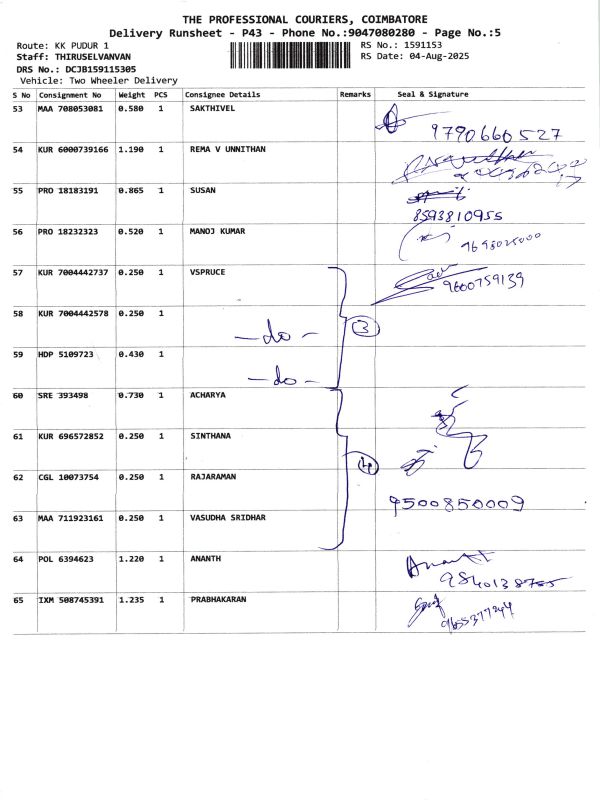 THE PROFESSIONAL COURIERS, COIMBATORE
Delivery Runsheet - P43 - Phone No.:9047080280 - Page No.:5
Route: KK PUDUR 1 RS No.: 1591153
Staff: THIRUSELVANVAN RS Date: 04-Aug-2025
DRS No.: DCJB159115305
Vehicle: Two Wheeler Delivery
S No Consignment No Weight PCS Consignee Details Remarks Seal & Signature
53 MAA 708053081 0.580 1 SAKTHIVEL
9790660527
54 KUR 6000739166 1.190 1 REMA V UNNITHAN
55 PRO 18183191 0.865 1 SUSAN
8593810955
56 PRO 18232323 0.520 1 MANOJ KUMAR
57 KUR 7004442737 0.250 1 VSPRUCE
9600759139
58 KUR 7004442578 0.250 1
-do- 3
59 HDP 5109723 0.430 1
-do-
60 SRE 393498 0.730 1 ACHARYA
61 KUR 696572852 0.250 1 SINTHANA
4
62 CGL 10073754 0.250 1 RAJARAMAN
9500850009
63 MAA 711923161 0.250 1 VASUDHA SRIDHAR
64 POL 6394623 1.220 1 ANANTH
Ananth
65 IXM 508745391 1.235 1 PRABHAKARAN